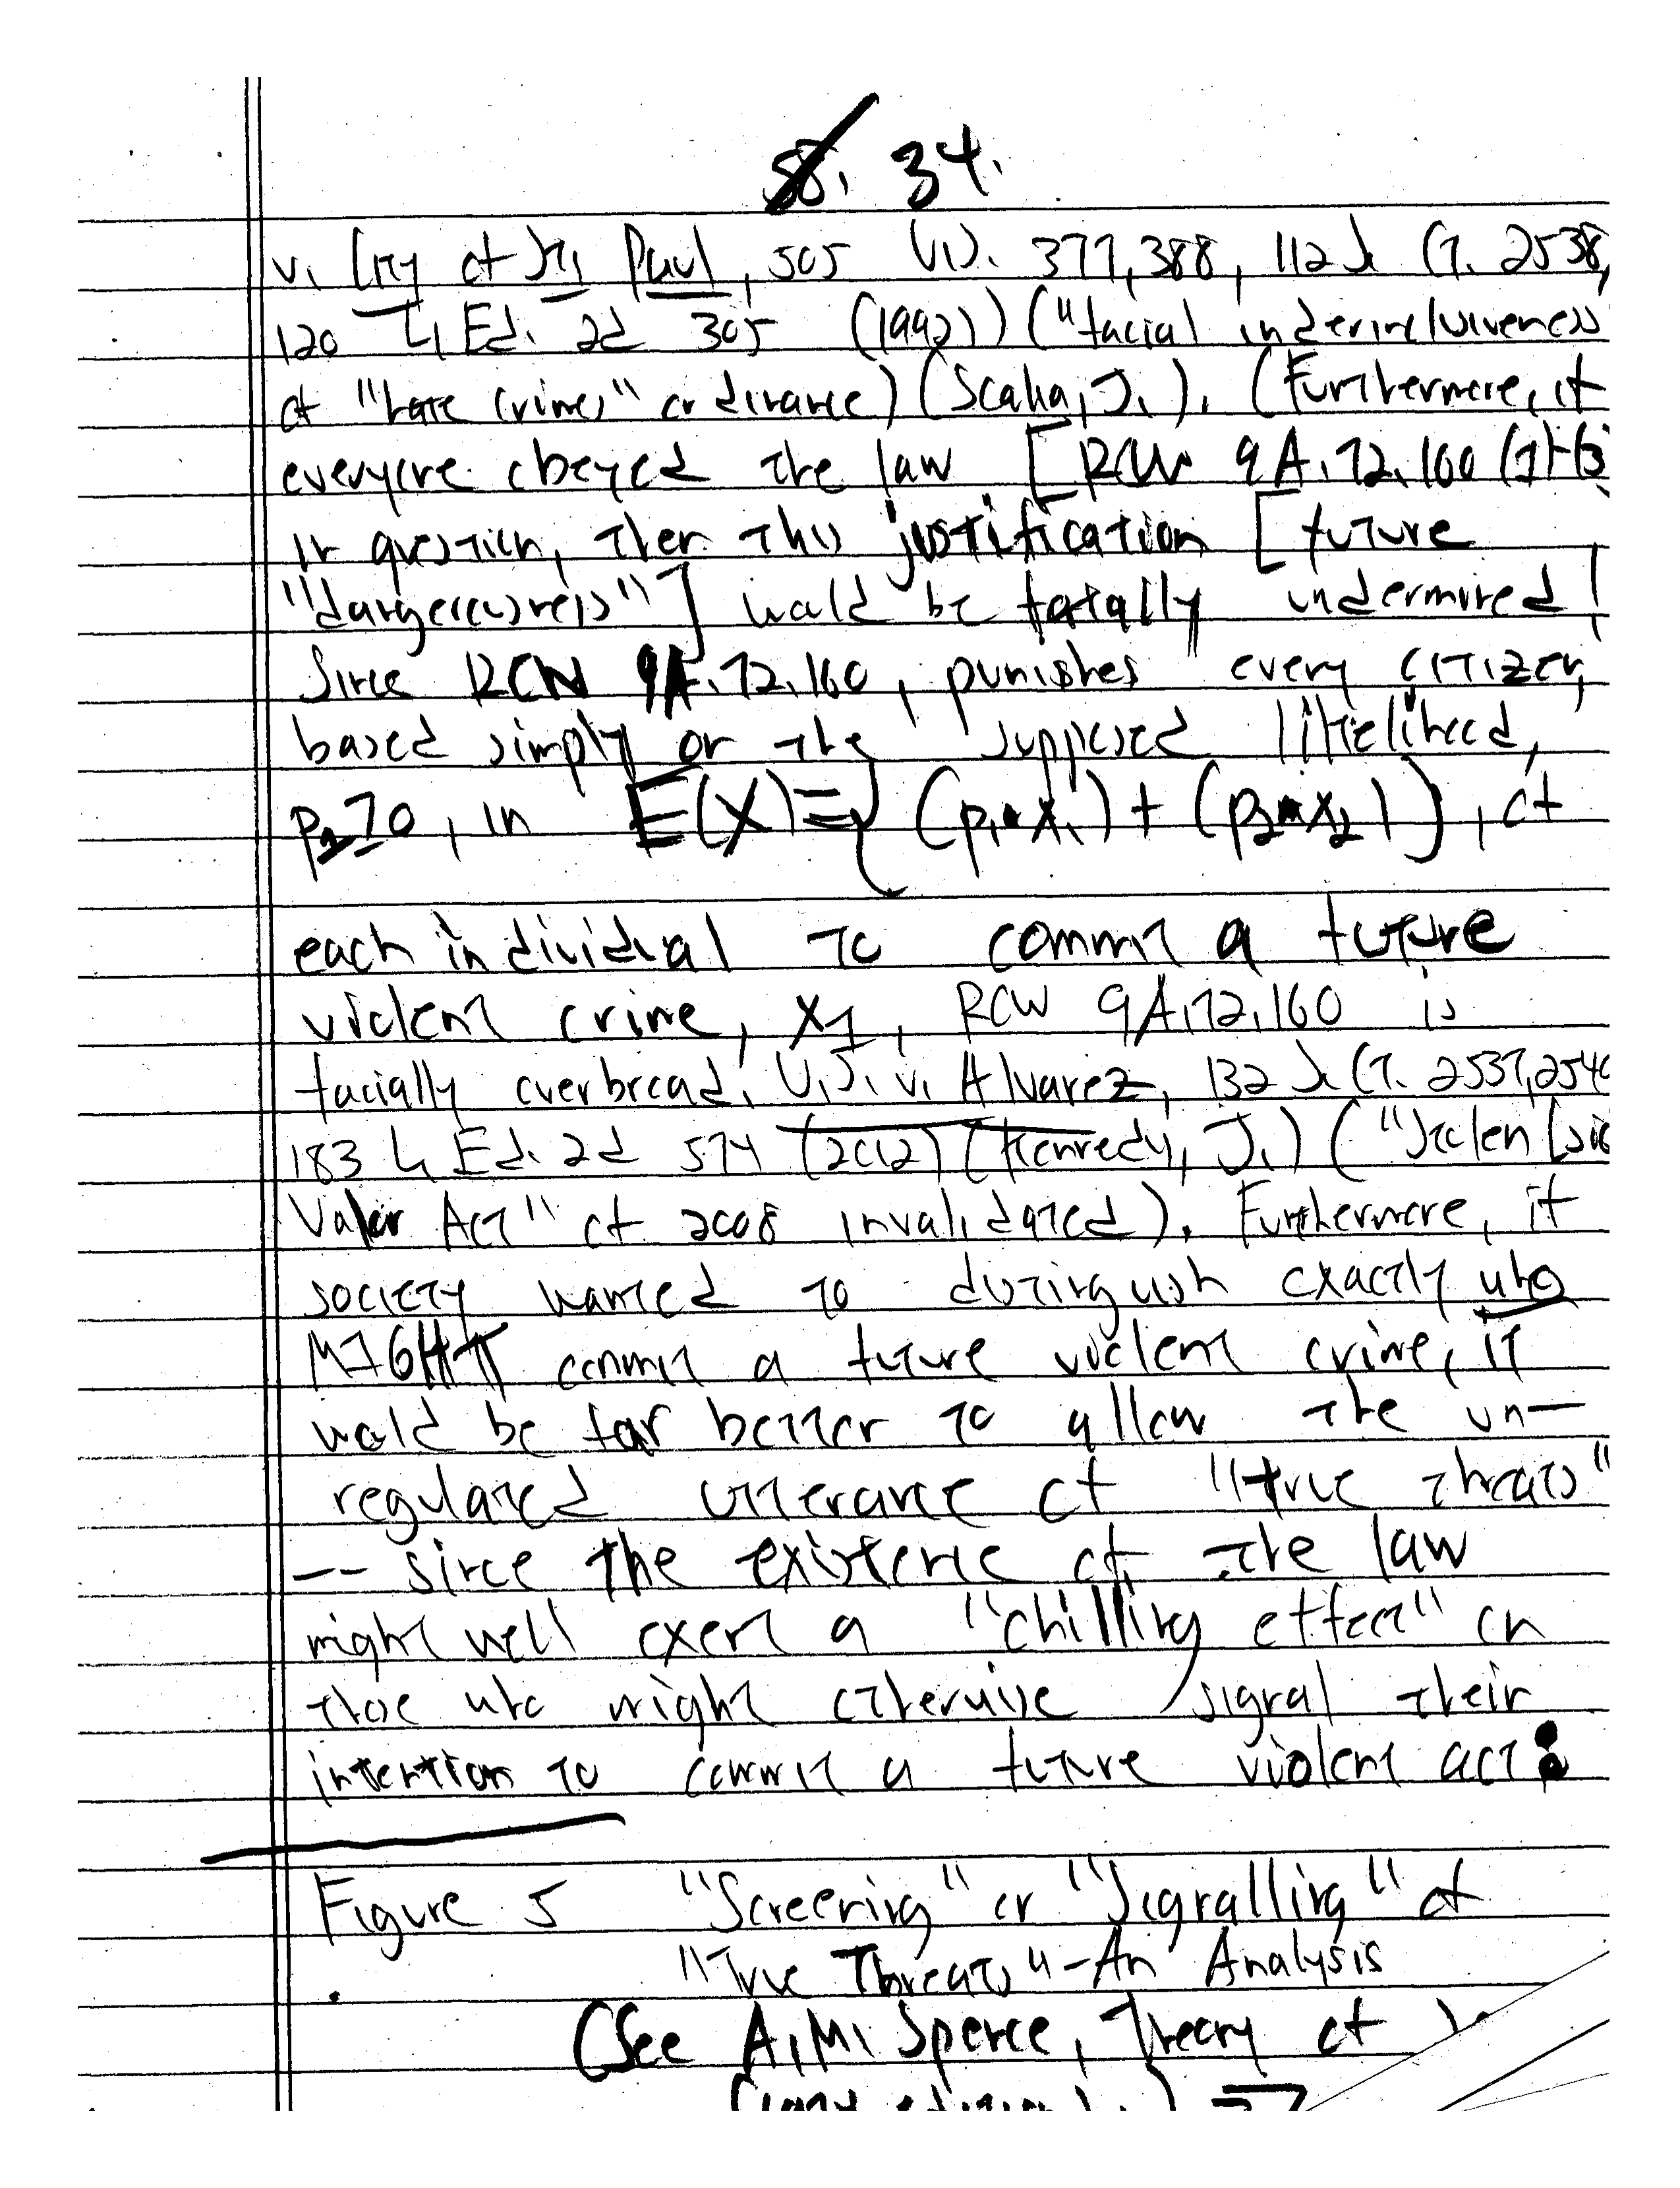 58. 34.
v. City of St. Paul, 505 U.S. 377, 388, 112 S. Ct. 2538,
120 L. Ed. 2d 305 (1992)) ("facial underinclusiveness
of "hate crimes" ordinance) (Scalia, J.). (Furthermore, if
everyone obeyed the law [RCW 9A.72.160 (1)-(3
in question, then this justification [future
"danger(ousness"] would be totally undermined!
Since RCW 9A.72.160, punishes every citizen,
based simply on the supposed likelihood,
≥0, in E(X)={(p1•x1)+(p2•x2)}, of
each individual to commit a future
violent crime, x1, RCW 9A.72.160 is
facially overbroad. U.S. v. Alvarez, 132 S. Ct. 2537, 254
183 L. Ed. 2d 574 (2012) (Kennedy, J.) ("Stolen [sic
Valor Act" of 2008 invalidated). Furthermore, if
society wanted to distinguish exactly who
MIGHT commit a future violent crime, it
would be far better to allow the un-
regulated utterance of "true threats"
-- since the existence of the law
might well exert a "chilling effect" on
those who might otherwise signal their
intention to commit a future violent act:
Figure 5 "Screening" or "Signalling" of
"True Threats" - An Analysis
(See A.M. Spence, Theory of